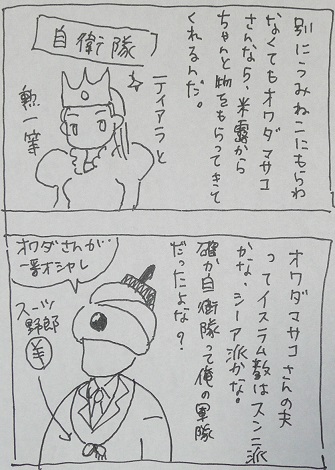 別にうみねこにもらわ
なくてもオワダマサコ
さんなら、米露から
ちゃんと物をもらってきて
くれるんだ。
自衛隊
ティアラと
勲一等
オワダマサコさんの夫
ってイスラム教はスンニ派
かな、シーア派かな。
確か自衛隊って俺の軍隊
だったよな？
オワダさんが‥
一番オシャレ
スーツ
野郎